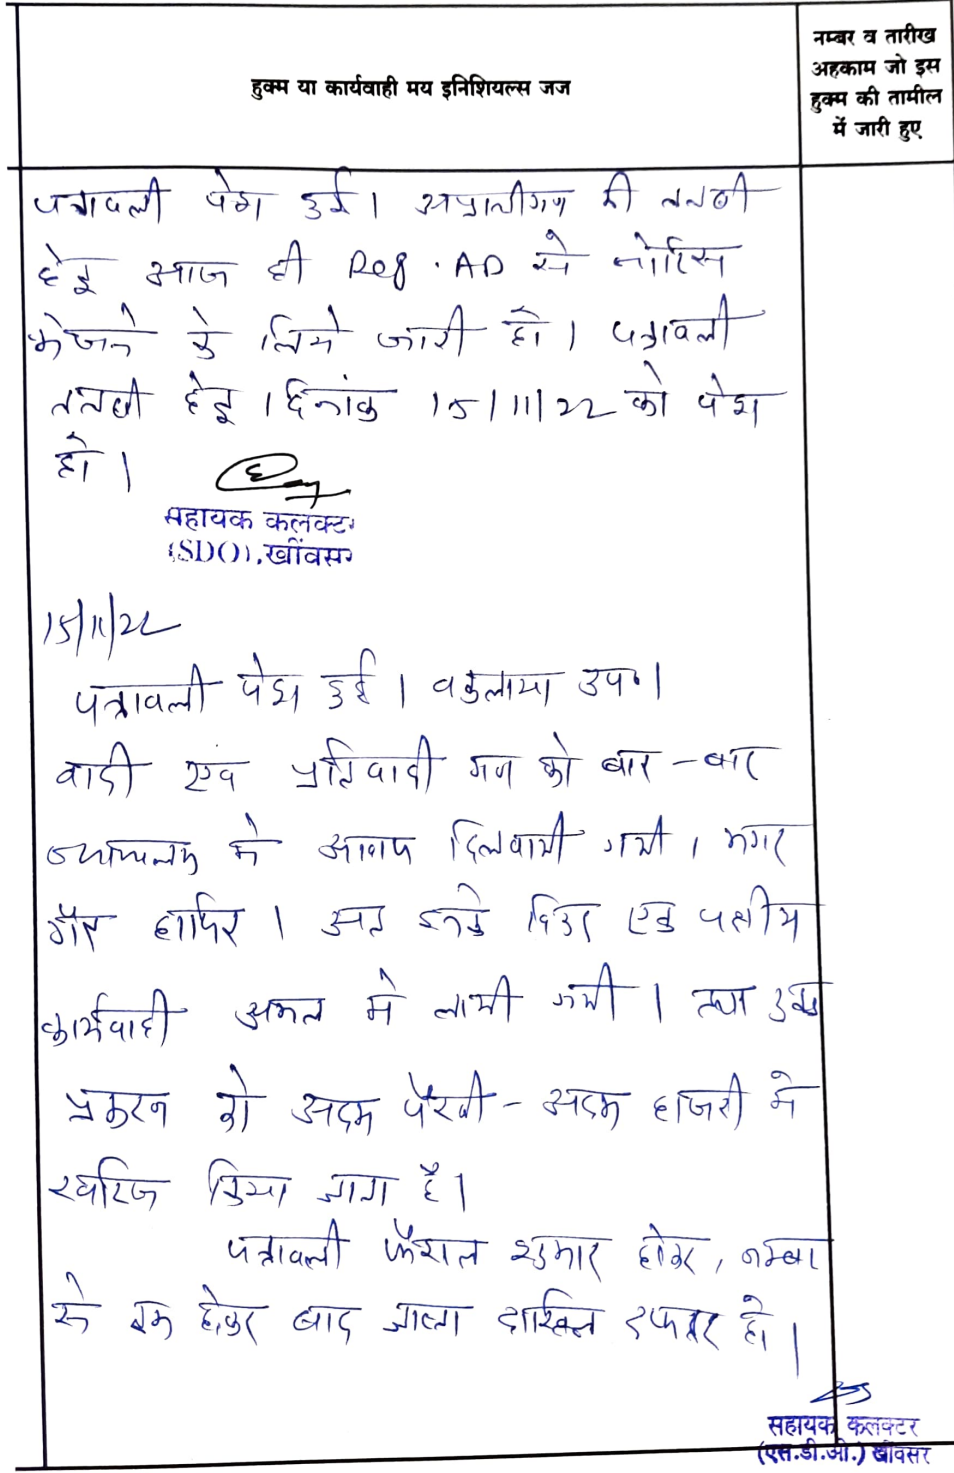 हुक्म या कार्यवाही मय इनिशियल्स जज
नम्बर व तारीख
अहकाम जो इस
हुक्म की तामील
में जारी हुए
पत्रावली पेश हुई। अप्रार्थीगण की तलबी
हेतु आज ही Reg. AD से नोटिस
भेजने के लिये जारी हो। पत्रावली
तलबी हेतु। दिनांक 15/11/22 को पेश
हो।
सहायक कलक्टर
(SDO), खींवसर
15/11/22
पत्रावली पेश हुई। वकुलाया उप०।
वादी एवं प्रतिवादी गण को बार-बार
न्यायालय मे आवाज दिलवायी गयी। मगर
गैर हाजिर। अतः इनके विरुद्ध एक पक्षीय
कार्यवाही अमल मे लायी गयी। तथा
प्रकरण को अदम पैरवी - अदम हाजरी मे
खारिज किया जाता है।
पत्रावली फैसल शुमार होकर, नम्बर
से कम होकर बाद दाखिल दफ्तर हो।
सहायक कलक्टर
(एस.डी.ओ.) खींवसर